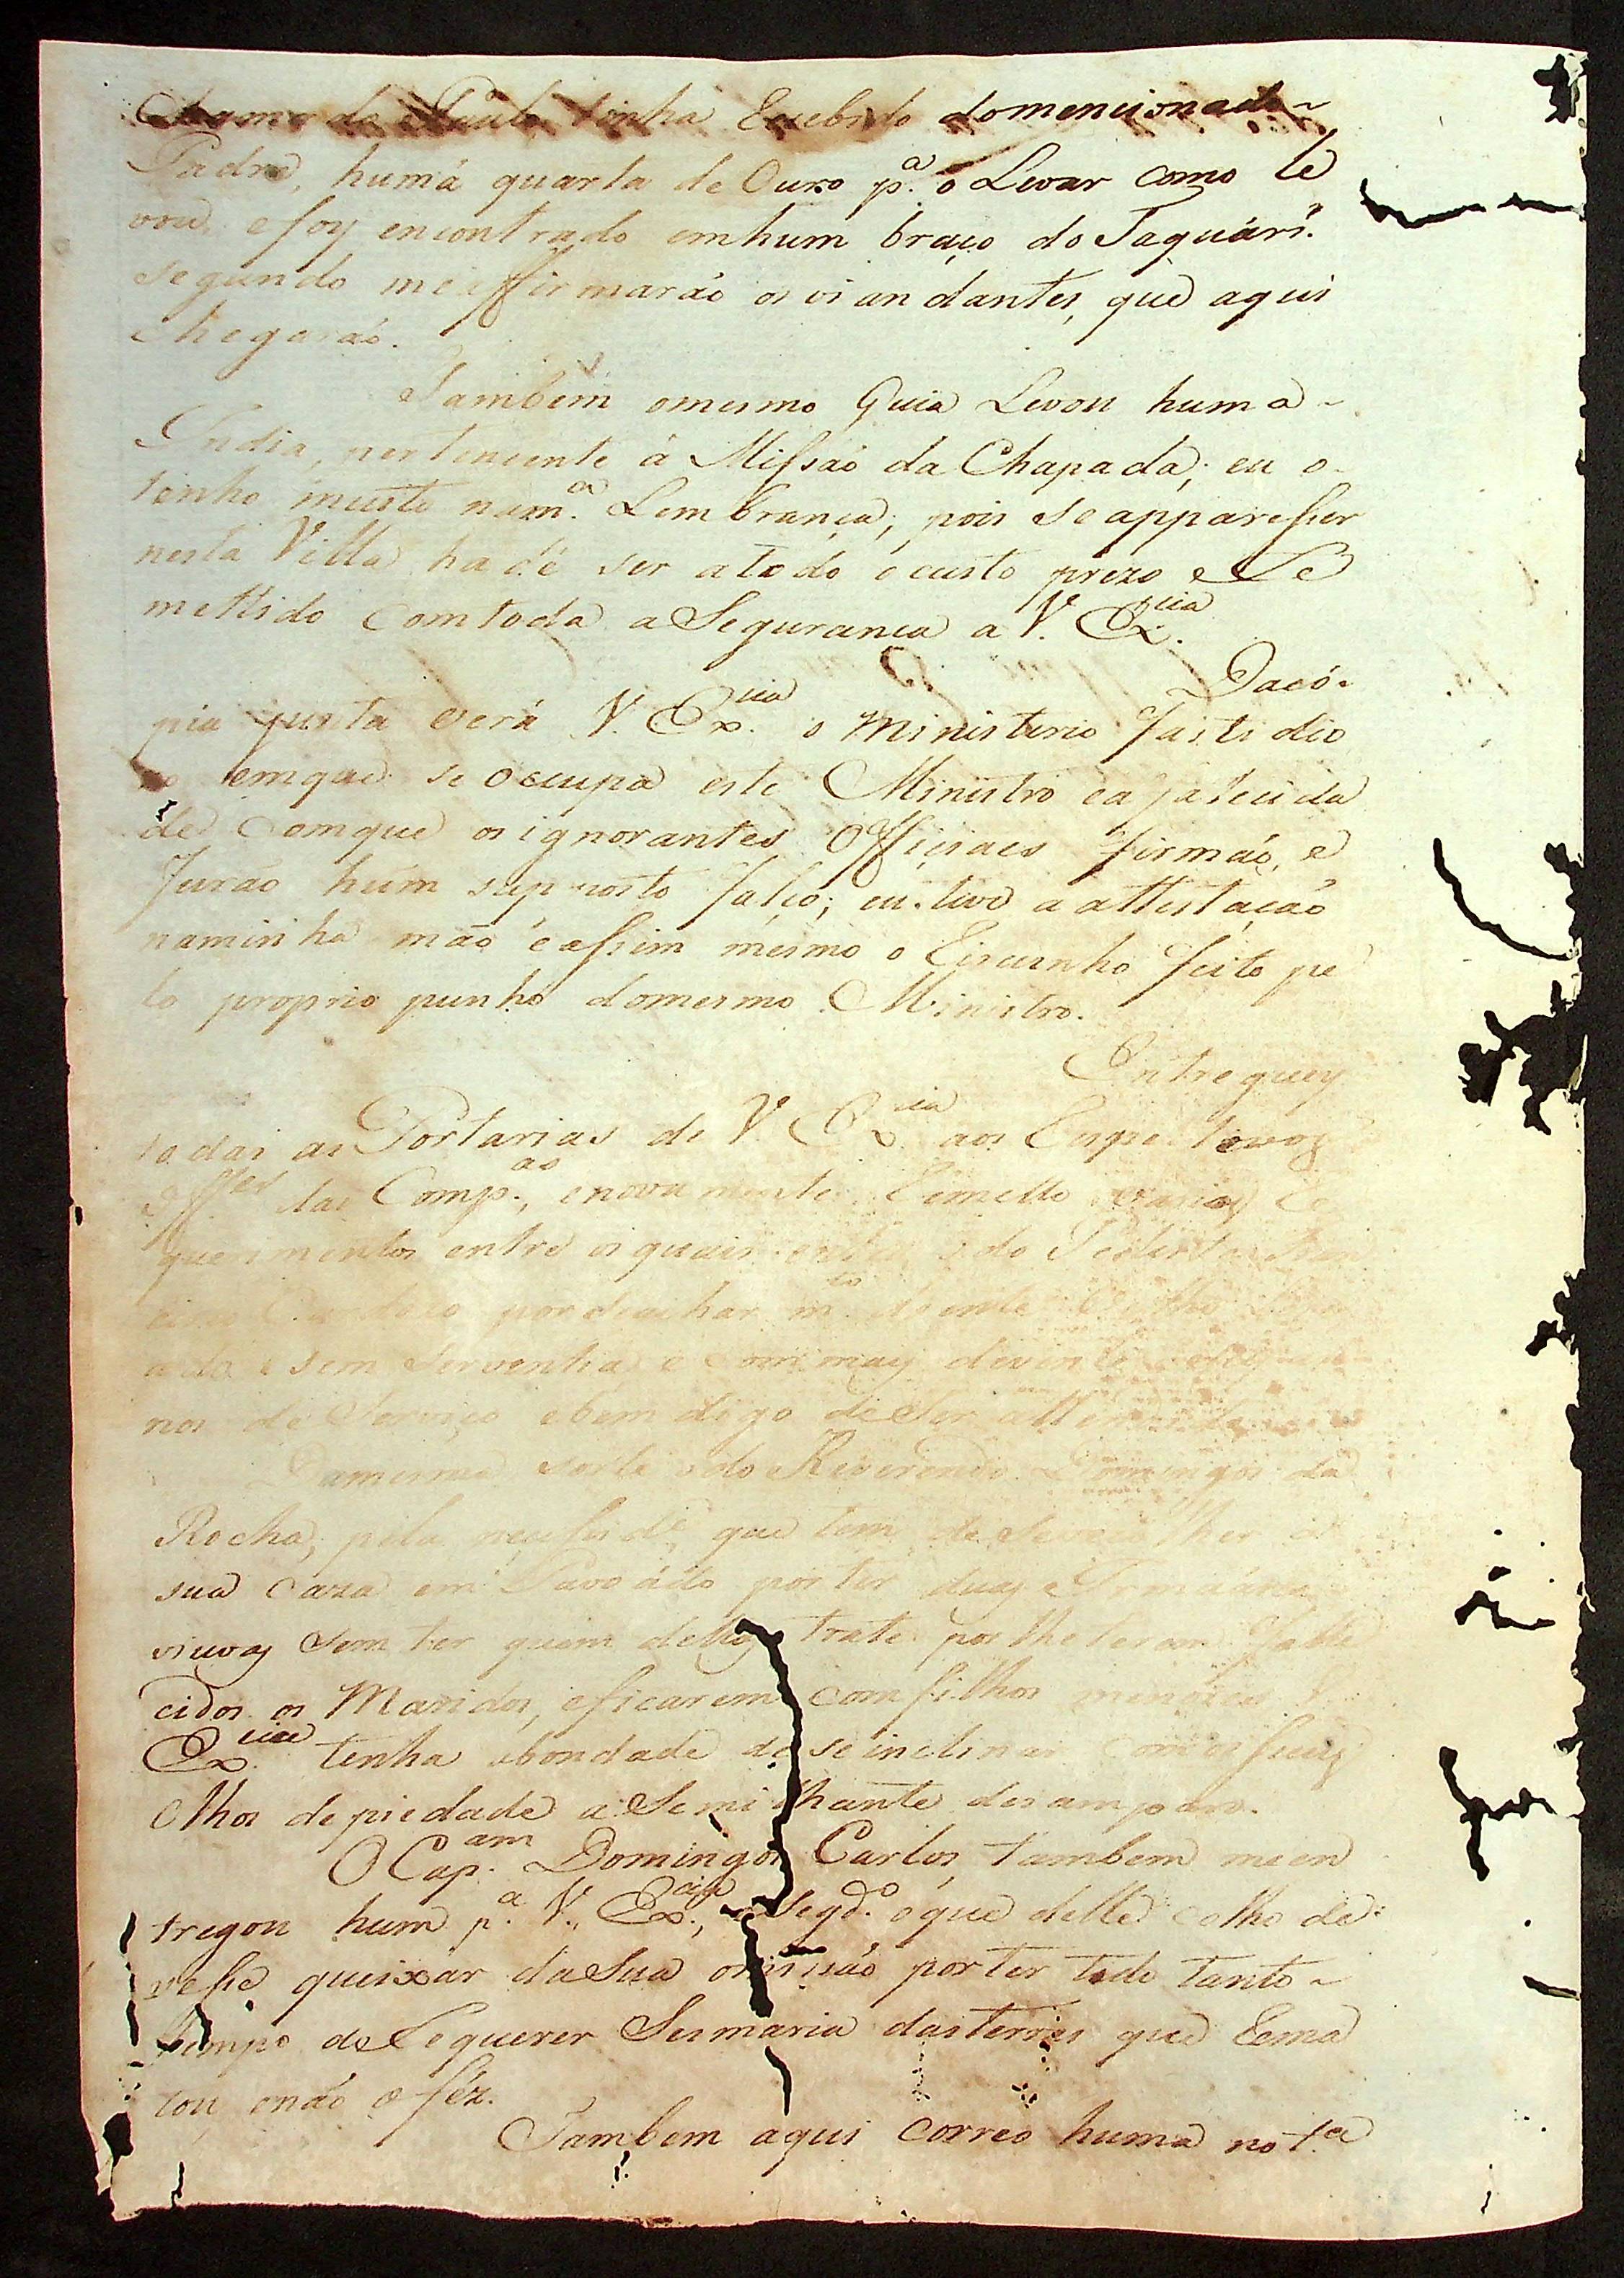 de Paula tinha Recebido domencionado~
Padre, humá quarta de Ouro p.ª o Levar como le
vou, e foy encontrado emhum braço do Taquári.
segundo meaffirmaráo os viandantes, que aqui
chegaráo.
Também omesmo Guia Levou huma~
India, pertencente á Missáo da Chapada; eu o~
tenho muito nam.ª Lembrança; pois se apparesser
nesta Villa, hadé ser atodo o custo prezo e Re
mettido comtoda a Segurança a V. Ex.cia
Dacó~
pia junta verá V. Ex.cia o Ministerio fastidio
zo emque se occupa este Ministro eafatuida
de comque os ignorantes Officiaes firmáo, e
Juráo hum suposto falço; eu tive a attestaçáo
naminha máo e assim mesmo o Riscunho feito pe
lo proprio punho domesmo Ministro.
Entreguey
todas as Portarias de V. Ex.cia aos Respectivos
Off.es das Comp.as, enovamente Remetto varios Re
querimentos entre os quais o do Pedista
Cardozo por se achar m.to doente
e sem serventia e com mais devinte
nos de Serviço ebem digo de Ser attendido
Damesma sorte o do Reverendo Domingos da
Rocha, pela que tem de Se Recolher a
sua caza em por ter duas Irmáns
viuvas sem ter quem dellas trate por lheterem falle
cidos os Maridos, eficarem comfilhos menores V.
Ex.cia tenha abondade de se inclinar comos seus
olhos depiedade a Semilhante desamparo.
O Cap.am Domingos Carlos, tambem meen
tregou hum p.ª V. Ex.cia, Segd.º oque delle colho de~
vesse queixar da Sua omissáo por ter tido tanto~
tempo de Requerer Sesmaria dasterras que Rema
tou, enáo o fêz.
Tambem aqui correo huma not.ª